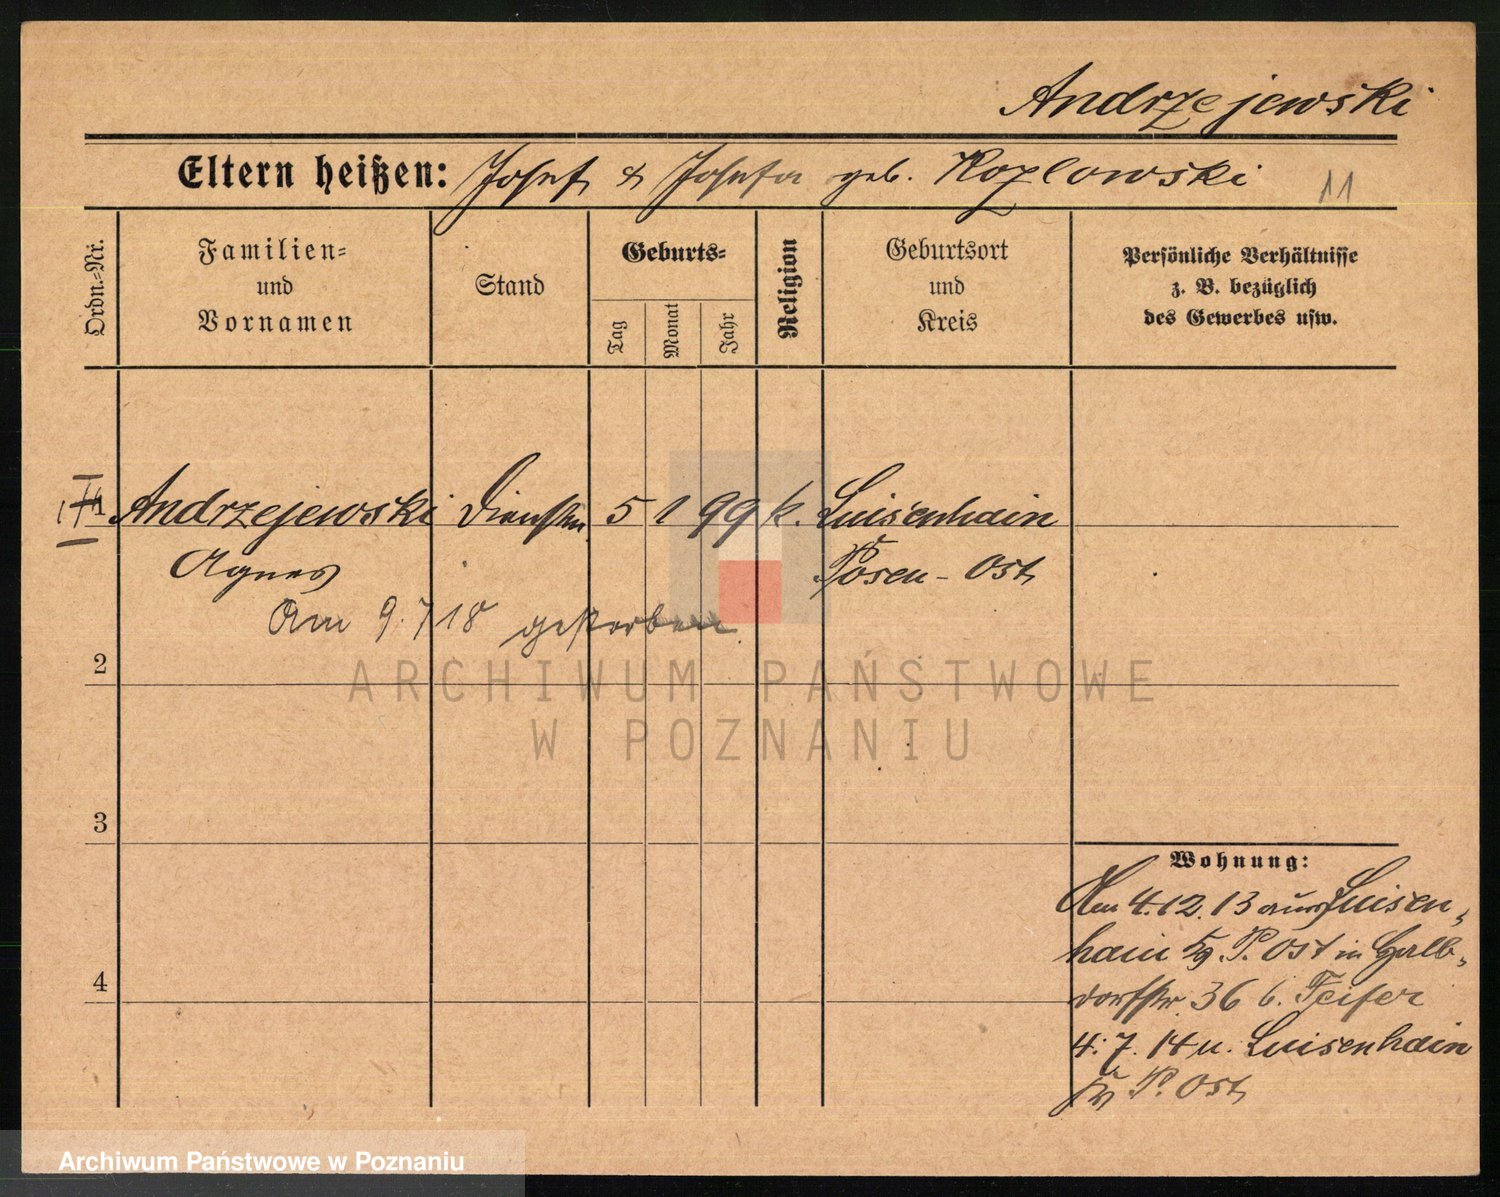 Andrzejewski
Eltern heißen: Josef & Josefa geb. Kozlowski 11
Ordn.-Nr.
Familien-
und
Vornamen
Stand
Geburts-
Tag
Monat
Jahr
Religion
Geburtsort
und
Kreis
Persönliche Verhältnisse
z. B. bezüglich
des Gewerbes usw.
Andrzejewski 5 1 99 k. Luisenhain
Agnes Posen-Ost
Am 9.7 18 gestorben
2
3
4
Wohnung:
Am 4.12.13 aus Luisen-
hain P. Ost in
36 b. Feifer
4.7.14 n. Luisenhain
P. Ost
ARCHIWUM PAŃSTWOWE
W POZNANIU
Archiwum Państwowe w Poznaniu